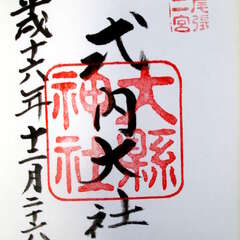 尾張
二宮
式内大社
大縣
神社
成十六年十二月二十六